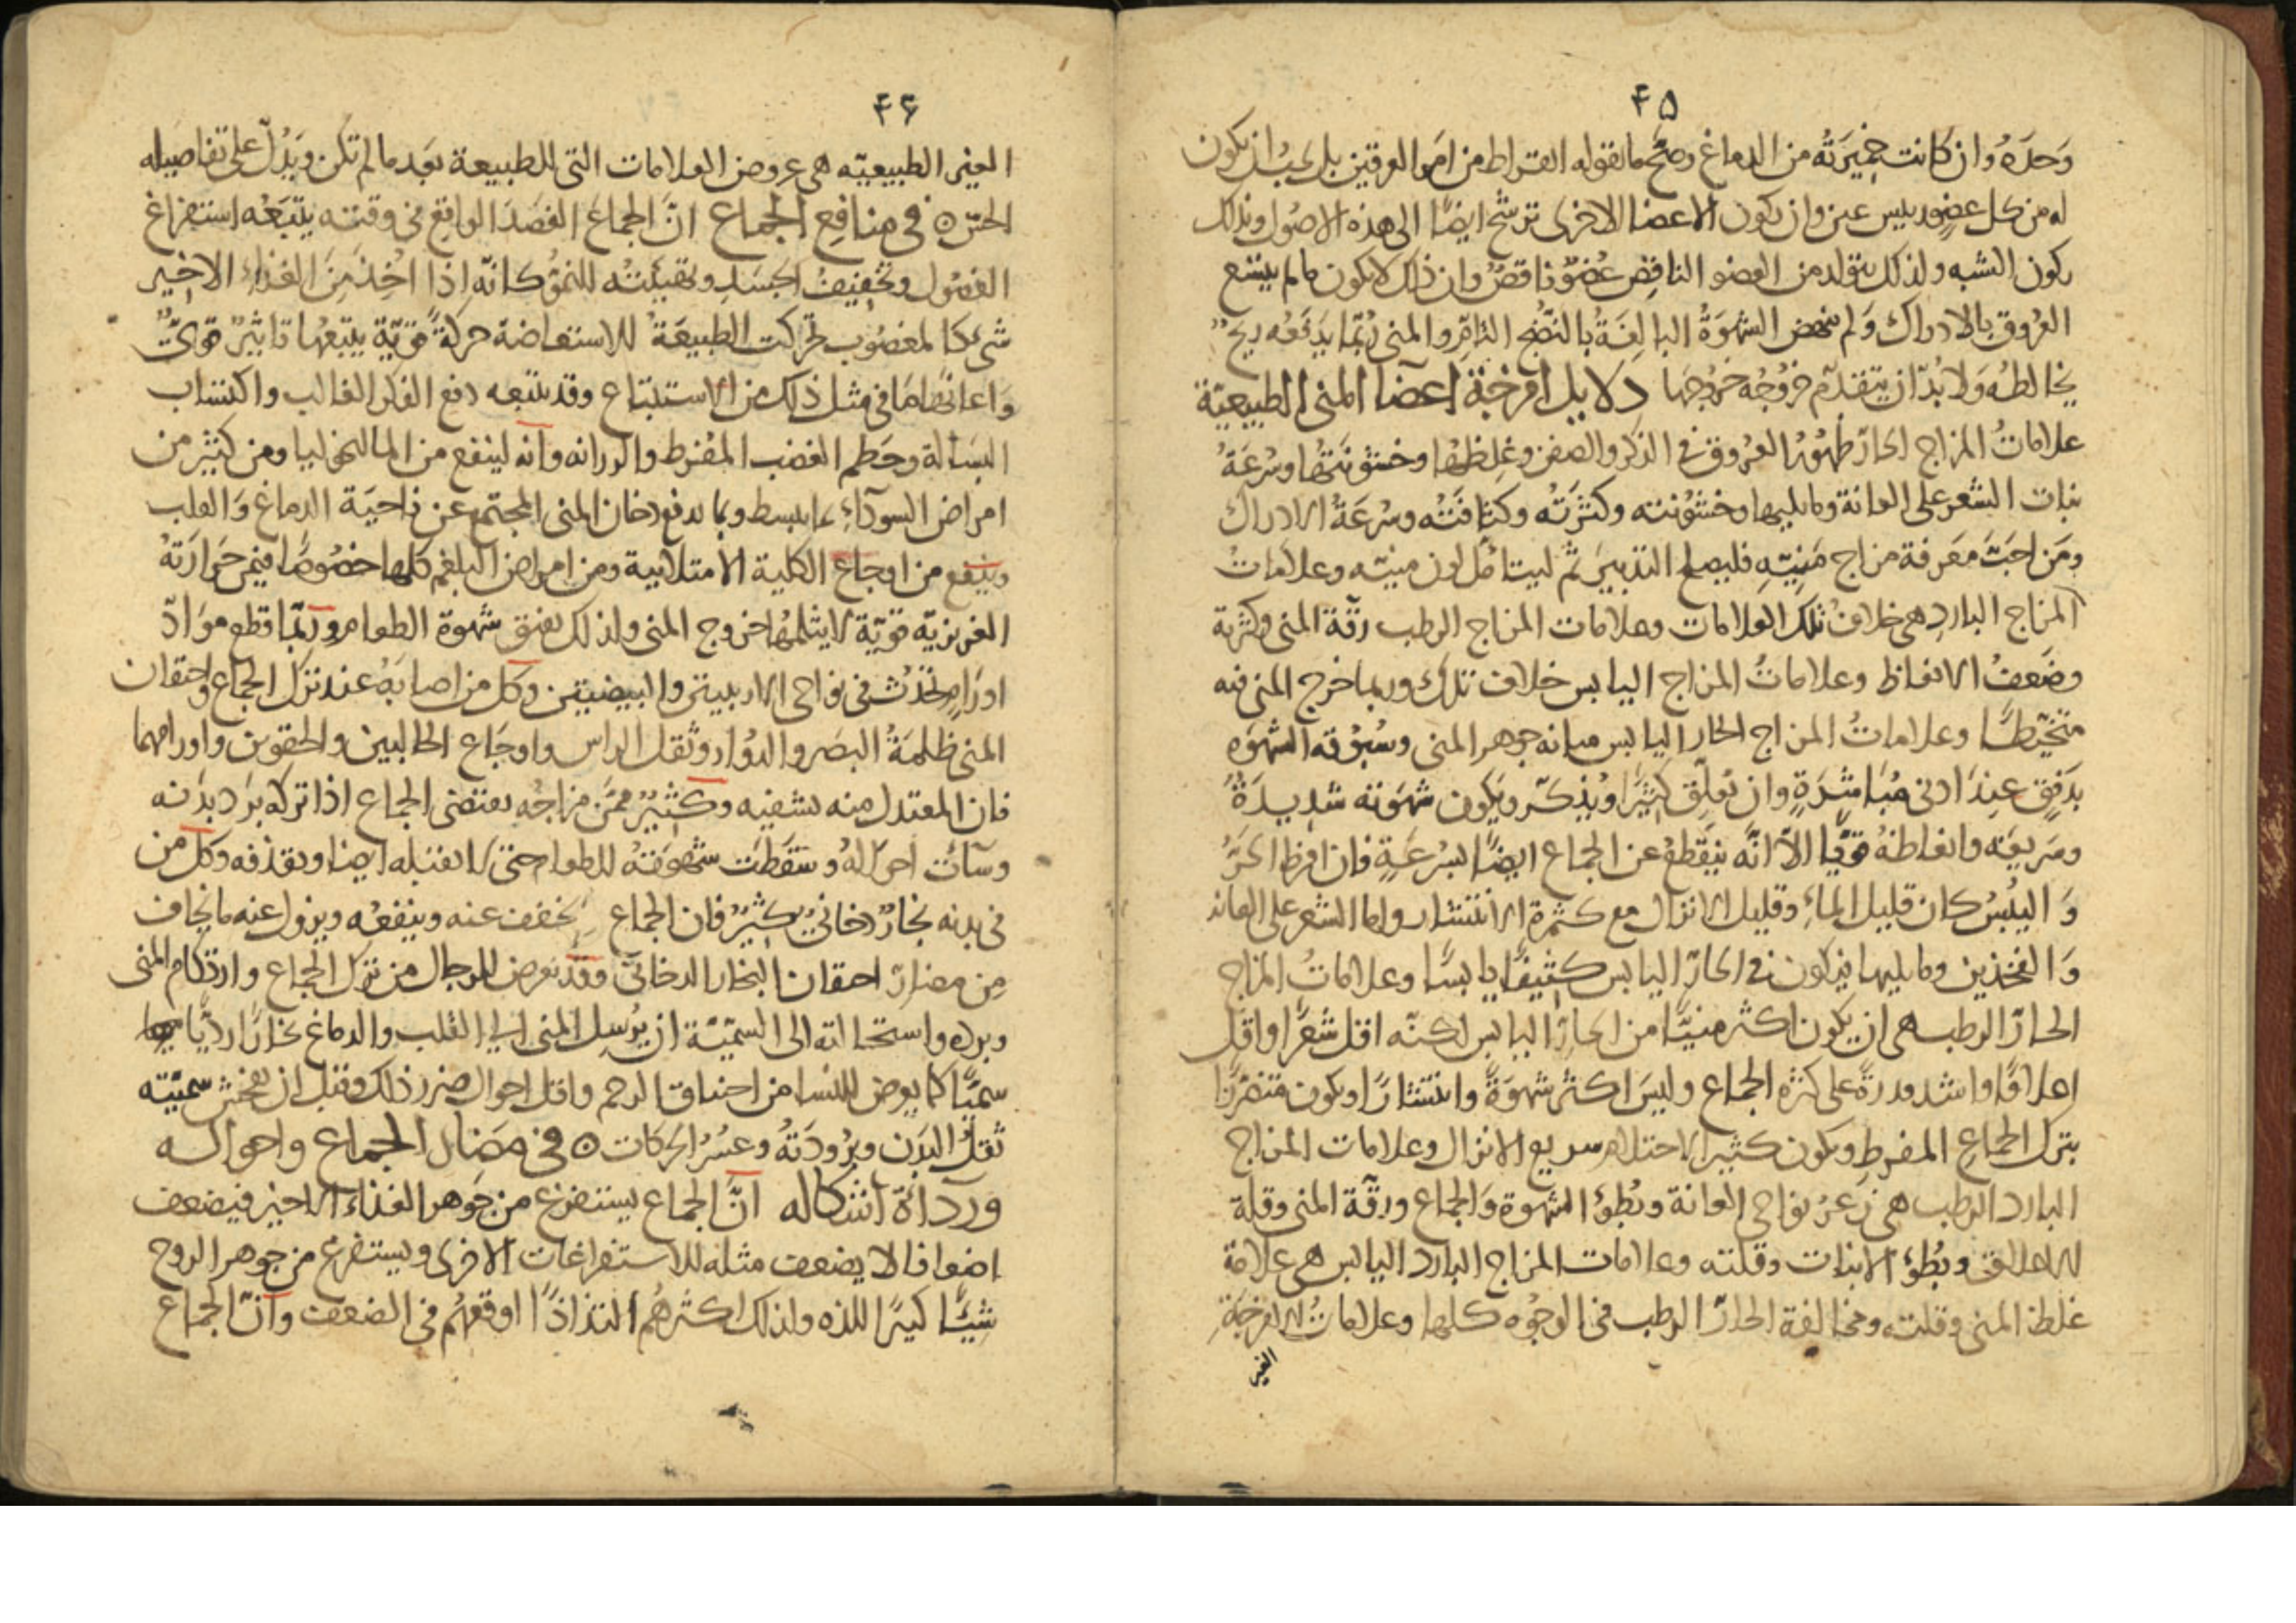 ۴۵
وَحدَهُ وان كانت خميرَتُه من الدماغ وصحَّ ما يقوله ابقراط من امر العرقين بل يجبُ ان يكون
له من كل عضو رييس عين وان يكون الاعضا الاخرى ترشح ايضًا الى هذه الاصول وبذلك
يكون الشبه ولذلك يتولد من العضو الناقِص عُضوٌ ناقصٌ وان ذلك لا يكون ما لم يتسع
العرُوق بالادراك وَلم ينهض الشهوَةُ البالغةُ بالنضج التامِّ والمنى رُبّما يدفعه ريحٌ
يخالطه وَلا بُدّ ان يتقدّم خروُجُه خرُوجها دلايل امزجة اعضآ المنى الطبيعيّة
علاماتُ المزاج الحارّ ظهُورُ العُروق فى الذكر والصفن وغِلظهُا وخشوُنتهُا وسُرعَةُ
نبات الشعر على العانة وما يليها وخشوُنته وكثرَتُه وكثافَتُه وسُرعَةُ الادراك
ومَن احبَّ مَعرفة مزاج مَنِيّهِ فليصلح التدبيرَ ثم ليتامّل لون منيّه وعلامَاتُ
المزاج الباردِ هى خلافُ تلك العلامات وعلامات المزاج الرطب رقّة المنى وكثرته
وضَعفُ الانعاظ وعلاماتُ المزاج اليابس خلاف تلك وربما خرج المنى فيه
متخيّطًا وعلاماتُ المزاج الحار اليابس متانه جوهر المنى وسُبوُقه الشهوَه
بدَفقٍ عِندَ ادنى مُبَاشرَةٍ وان يُعلِّق كثيرًا ويُذكّر ويَكون شهوَته شديدَةً
وسَريعَه وانعاظهُ قويًّا الّا انَّه ينقَطعُ عن الجماع ايضًا بسُرعَةٍ فان افرط الحَرُّ
وَاليُبسُ كان قليل المآءِ وقليل الانزال مع كثرة الانتشار واما الشعر على العانه
وَالفخذين وما يليها فيكون فى الحارّ اليابس كثيفًا يابسًا وعلاماتُ المزاج
الحارّ الرطب هى ان يكون اكثر منيًّا من الحارِّ اليابس لكنّه اقل شعَرًا واقل
اعلاقًا واشد قدرةً على كثره الجماع وليسَ اكثرُ شهوَةً وانتشارًا ويكون متضرّرًا
بترك الجماع المفرط ويكون كثير الاحتلام سريع الانزال وعلامات المزاج
البارد الرطب هى زعَرُ نواحى العانة وبُطوُ الشهوة وَالجماع ورقّة المنى وقلّة
الاعلاق وبُطوُ الانبات وقلته وعلامات المزاج البارد اليابس هى علامة
غلظ المنى وقلته ومخالفة الحارّ الرطب فى الوجُوه كلها وعلاماتُ الامزجَةِ
الغير
۴۶
الغير الطبيعيّه هى عروض العلامات التى للطبيعة بَعد ما لم تكن ويَدُلّ على تفاصيله
الحسّ ٥ فى منافع الجماع انَّ الجماعَ القصَدَ الواقعَ فى وقته يتبَعُه استفراغ
الفضُول وتخفيفُ الجسَدِ وتهييئتُه للنموُ كانّه اذا اُخِذ مِنَ الغذاءِ الاخير
شىءٌ كالمغصُوب تحركت الطبيعَةُ للاستفاضة حركةً قويّة يتبعُها تاثيرٌ قوىٌّ
وَاعانهُا ما فى مثل ذلك من الاستتباع وقد يتبعه دفع الفكر الغالب واكتساب
البسَالة وحَطم الغضب المُفرط والرزانه وانّه لينفع من المالنخوليا ومن كثير من
امراض السودآءِ بما يبسط وبما يدفع دخان المنى المجتمع عن ناحيَة الدماغ وَالقلب
وينفع من اوجاع الكلية الامتلاييّة ومن امراض البلغم كلها خصُوصًا فيمن حَرارَتهُ
الغريزيّة قويّة لا يثلمهُا خروج المنى ولذلك يفتق شهوة الطعام ورُبّما قطع موَادّ
اورَامٍ تحدُث فى نواحى الاربيتين والبيضيتين وكل من اصابَهُ عند ترك الجماع واحقان
المنى ظلمَةُ البصَر والدُوار وثقل الراس واوجَاع الحالبين والحقوين واورامهما
فان المعتدل منه يشفيه وكثيرٌ ممَّن مزاجُه يقتضى الجماع اذا تركه بَرَد بدَنه
وسآئت احوَالهُ وسَقَطت شهوَتهُ للطعام حتى لا يقبله ايضا ويقذفه وكل من
فى بدنه بخارٌ دخانىٌ كثيرٌ فان الجماع يخفف عنه وينفعُه ويزول عنه ما يخاف
مِن مضارّ احقان البخار الدخانىّ وقد يعرض للرجال من ترك الجماع وارتكام المنى
وبرده واستحالته الى السمّيّة ان يُرسِل المنى الى القلب والدماغ بخارًا رديًّا
سمّيًّا كما يعرض للنسا من اختناق الرحم واقل احوال ضرر ذلك وقبل ان يفحش سمّيّته
ثقلُ البدَن وبرُودَتُهُ وعسُرُ الحركات ٥ فى مَضَار الجماع واحواله
ورَدآءَة اشكاله انَّ الجماع يستفرغ من جَوهر الغذاء الاخير فيضعف
اضعافا لا يضعف مثله للاستفراغات الاخرى ويستفرغ من جوهر الروح
شيئًا كثيرًا للذه ولذلك اكثرهُم التذاذًا اوقعهُم فى الضعف وانّ الجماع